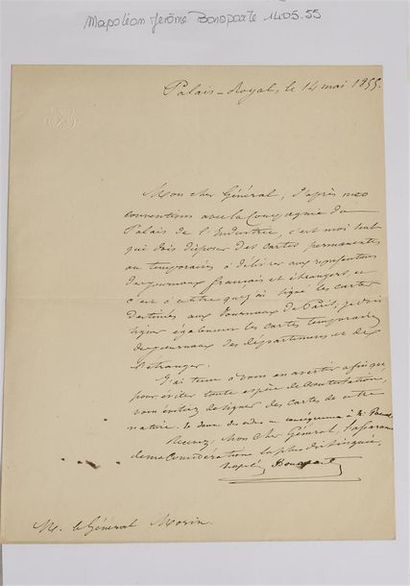 Napoléon Jérôme Bonaparte 14.05.55
Palais-Royal, le 14 mai 1855.
Mon cher Général, d'après nos
conventions avec la Compagnie du
Palais de l'Industrie, c'est moi seul
qui dois disposer des cartes permanentes
ou temporaires à délivrer aux représentans
des journaux français et étrangers et
c'est à ce titre que j'ai signé les cartes
destinées aux Journaux de Paris, je dois
signer également les cartes temporaires
des journaux des départements et de
l'étranger.
J'ai tenu à vous en avertir afin que
pour éviter toute espèce de contestation,
vous évitiez de signer des cartes de cette
nature. Je donne des ordres en conséquence à M.
Recevez, Mon Cher Général, l'assurance
de ma considération la plus distinguée,
Napoléon Bonaparte
M. le Général Morin.